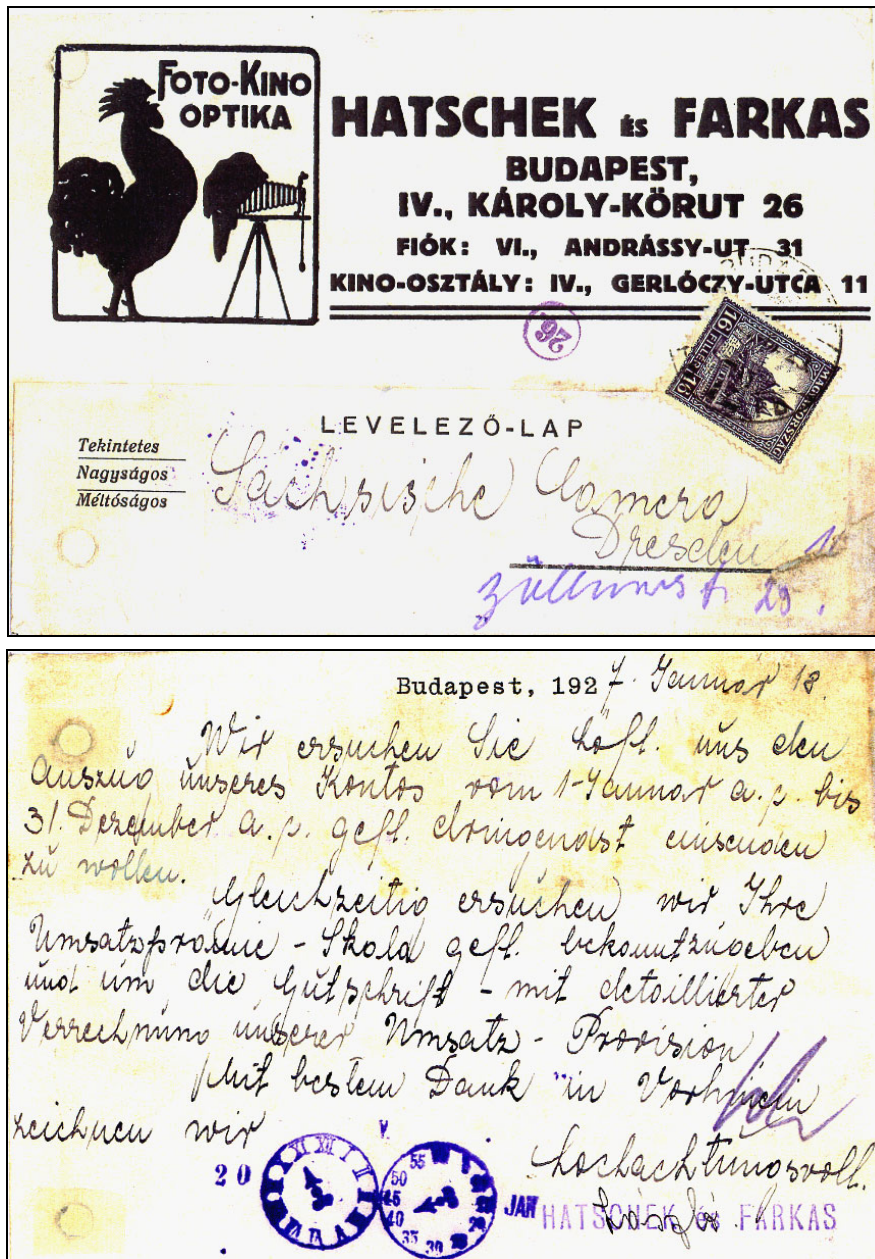 FOTO-KINO
OPTIKA
HATSCHEK ÉS FARKAS
BUDAPEST,
IV., KÁROLY-KÖRUT 26
FIÓK: VI., ANDRÁSSY-UT 31
KINO-OSZTÁLY: IV., GERLÓCZY-UTCA 11
26
16 FILLÉR 16
MAGYARORSZÁG
LEVELEZŐ-LAP
Tekintetes
Nagyságos
Méltóságos
Sächsische Camera
Dresden
29.
Budapest, 1927. Januar 18.
Wir ersuchen Sie höfl. uns den
Auszug unseres Kontos vom 1-Januar a.p. bis
31. Dezember a.p. gefl. dringendst einsenden
zu wollen.
Gleichzeitig ersuchen wir Ihre
Umsatzprämie - Skala gefl. bekanntzugeben
und um die Gutschrift - mit detaillierter
Verrechnung unserer Umsatz - Provision
Mit bestem Dank in Vorhinein
zeichnen wir
hochachtungsvoll.
20
V.
JAN
HATSCHEK és FARKAS